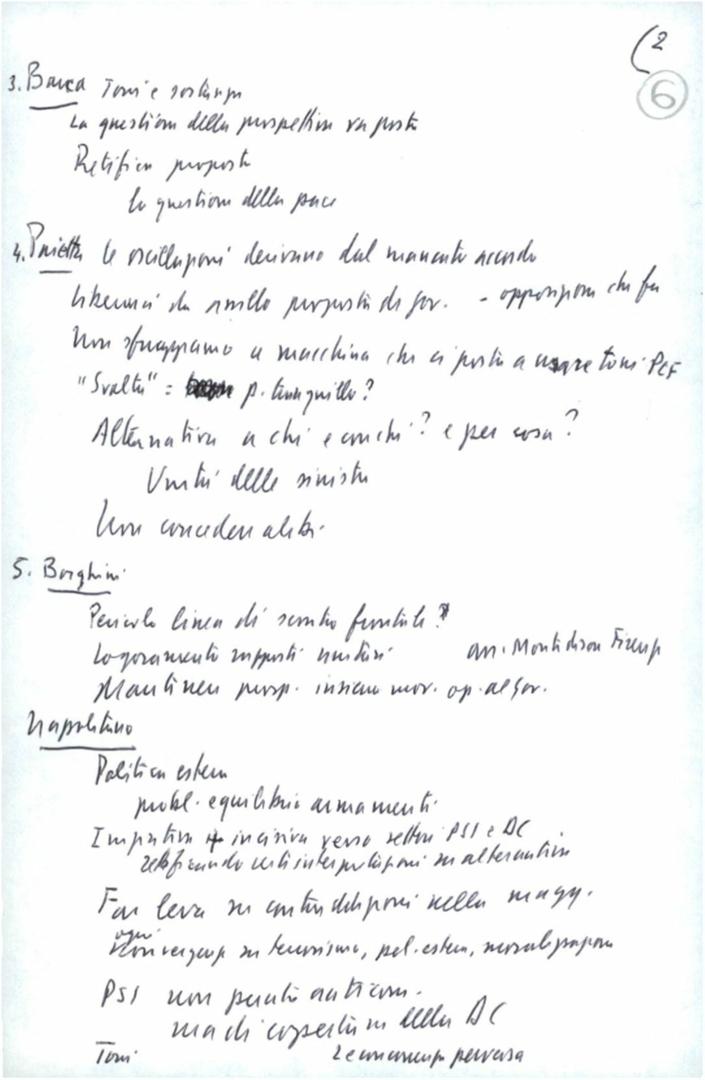 (2
6
3. Barca Toni e sostanza
La questione della prospettiva va posta
Retifica proposta
la questione della pace
4. Pajetta le oscillazioni derivano dal mancato accordo
da proposta di gov. - opposizione che fa
Non sfuggiamo a macchina che ci porta a usare toni PCF
"Svolta" = p. tranquillo?
Alternativa a chi e con chi? e per cosa?
Unità delle sinistre
Non conceden alibi
5. Borghini
Pericolo linea di scontro frontale?
Logoramento rapporti unitari
Montedison Firenze
Mantenere prosp. insieme mov. op. al gov.
Napolitano
Politica estera
probl. equilibrio armamenti
Iniziativa + incisiva verso settori PSI e DC
retificando certi interpretazioni su alternativa
Far leva su contraddizioni nella magg.
ogni
convergenza su terrorismo, pol. estera, moralizzazione
PSI non punta anticom.
ma di copertura della DC
Toni
La concorrenza perversa